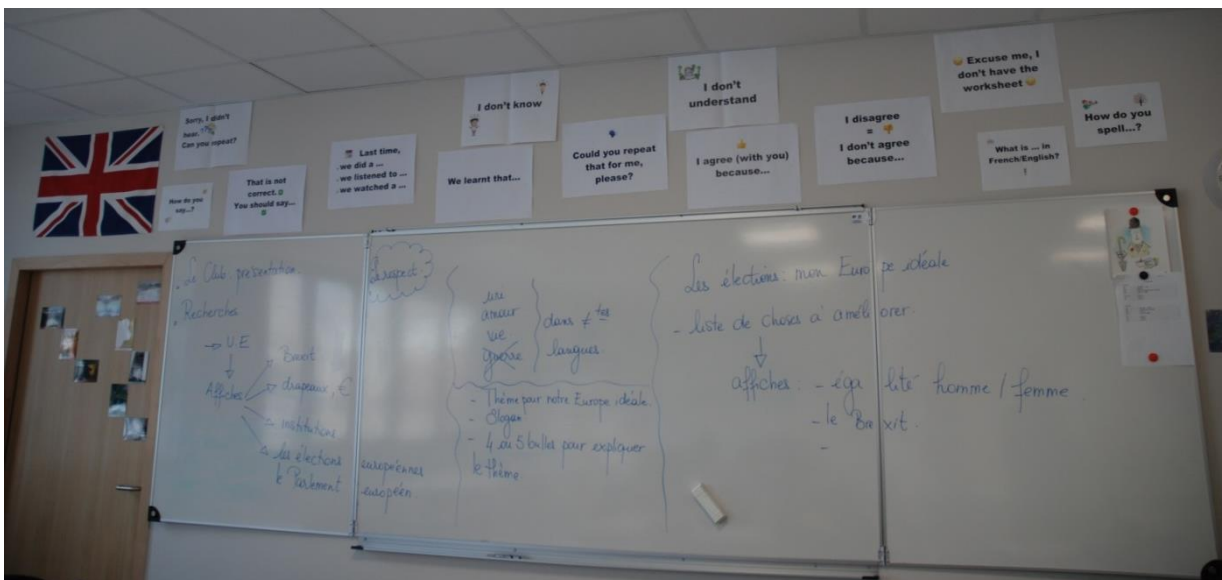 Sorry, I didn't
hear.
Can you repeat?
How do you
say...?
That is not
correct.
You should say...
Last time,
we did a ...
we listened to ...
we watched a ...
I don't know
We learnt that...
Could you repeat
that for me,
please?
I don't
understand
I agree (with you)
because...
I disagree
=
I don't agree
because...
Excuse me, I
don't have the
worksheet
What is ... in
French/English?
!
How do you
spell...?
. Le Club : présentation
. Recherches
→ U.E
Affiches
drapeaux, €
institutions
les élections européennes
le Parlement européen.
respect
amour
vie
guerre
dans ≠ tes
langues.
- Thème pour notre Europe idéale.
- Slogan
- 4 ou 5 bulles pour expliquer
le thème
Les élections : mon Europe idéale
- liste de choses à améliorer.
affiches : - égalité homme / femme
- le Brexit.
-